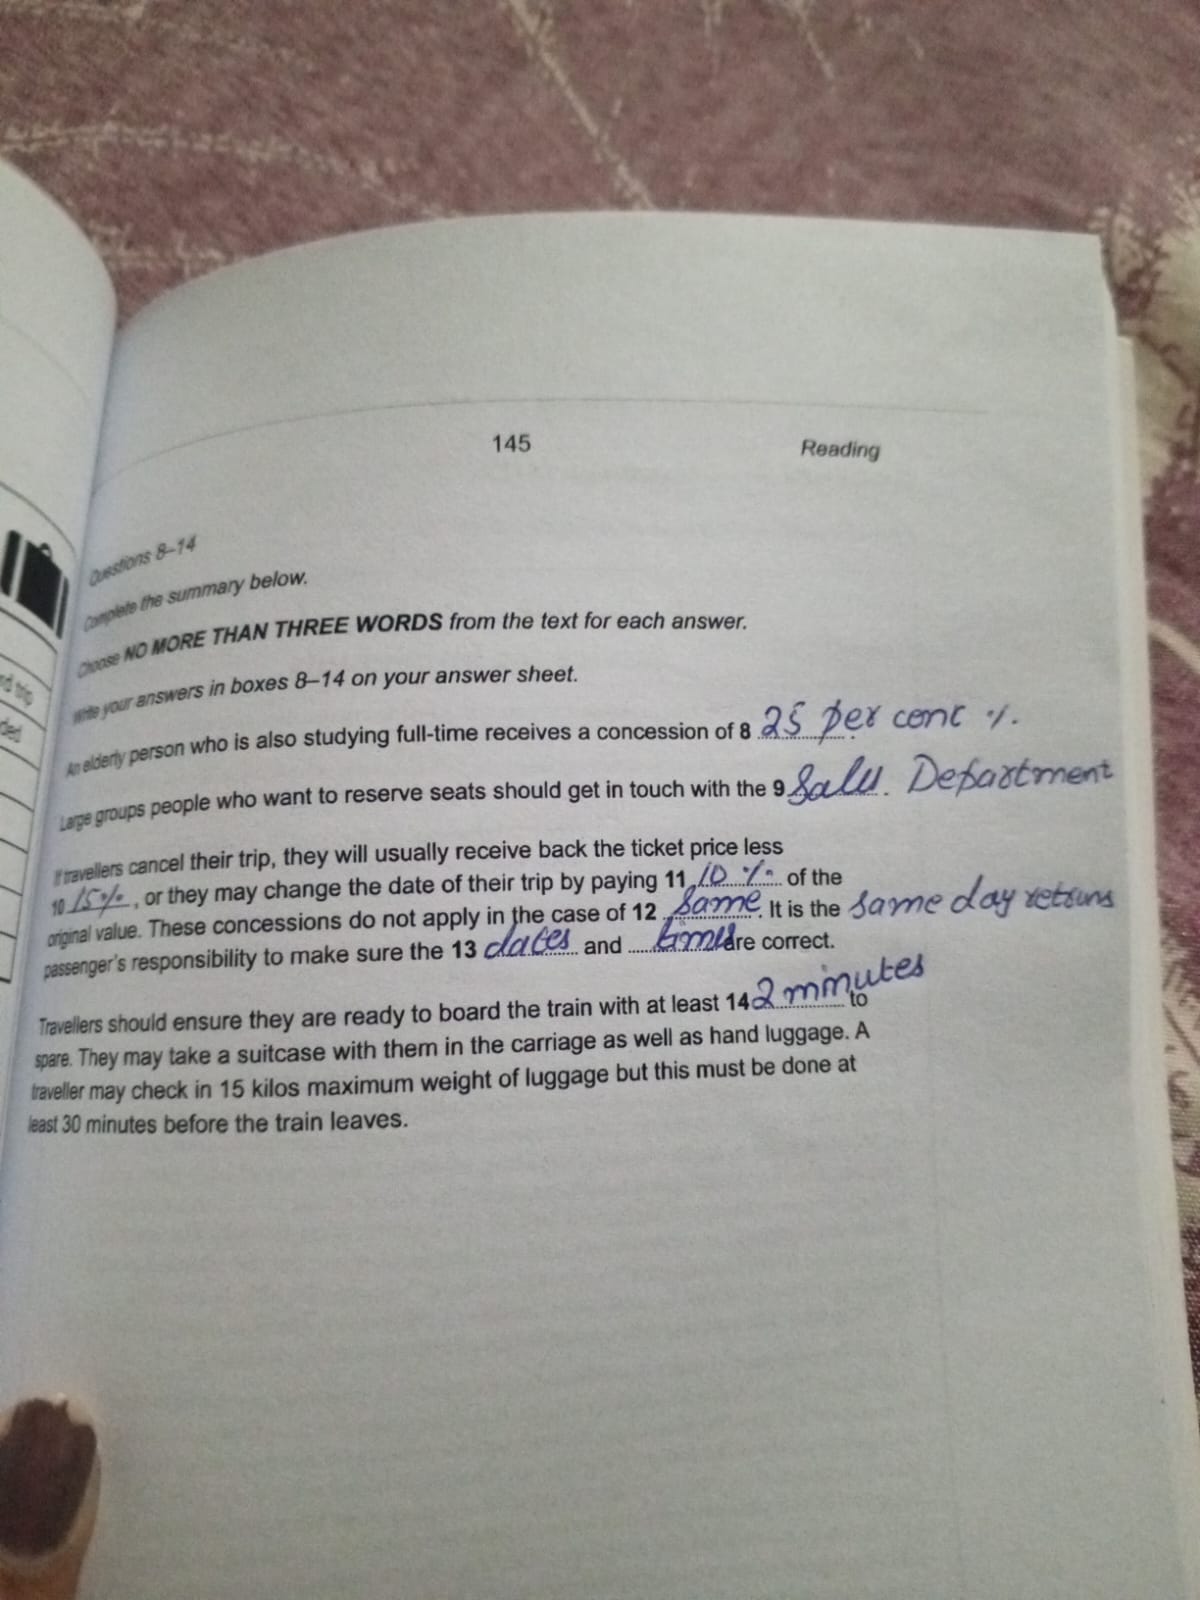 145 Reading
Questions 8–14
Complete the summary below.
Choose NO MORE THAN THREE WORDS from the text for each answer.
Write your answers in boxes 8–14 on your answer sheet.
An elderly person who is also studying full-time receives a concession of 8 25 per cent %.
Large groups people who want to reserve seats should get in touch with the 9 Sales. Department
If travellers cancel their trip, they will usually receive back the ticket price less
10 15%, or they may change the date of their trip by paying 11 10 % of the
original value. These concessions do not apply in the case of 12 same. It is the same day returns
passenger's responsibility to make sure the 13 dates and times are correct.
Travellers should ensure they are ready to board the train with at least 14 2 minutes to
spare. They may take a suitcase with them in the carriage as well as hand luggage. A
traveller may check in 15 kilos maximum weight of luggage but this must be done at
least 30 minutes before the train leaves.